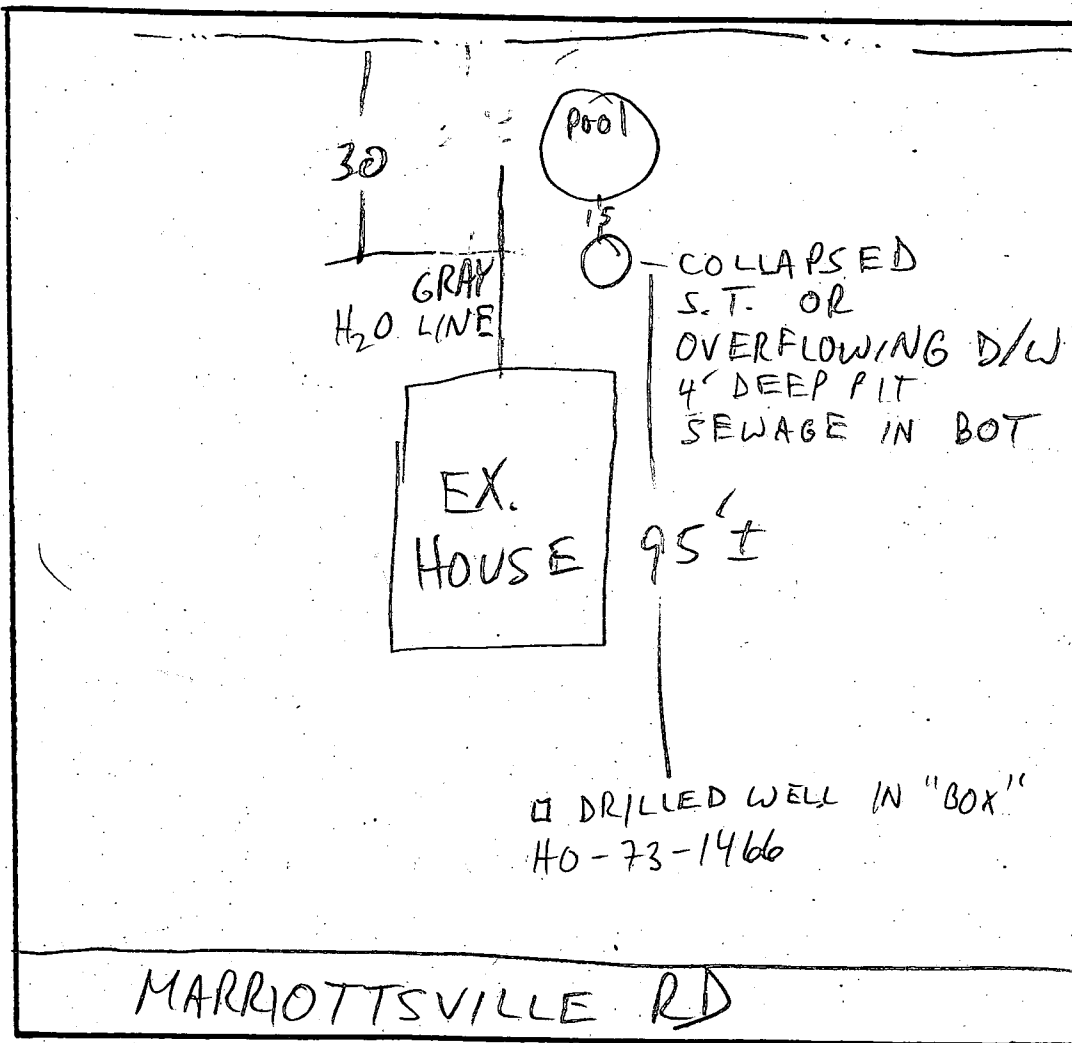 Pool
30
15
GRAY
H₂O LINE
COLLAPSED
S.T. OR
OVERFLOWING D/W
4' DEEP PIT
SEWAGE IN BOT
EX.
HOUSE
95'±
DRILLED WELL IN "BOX"
HO-73-1466
MARRIOTTSVILLE RD